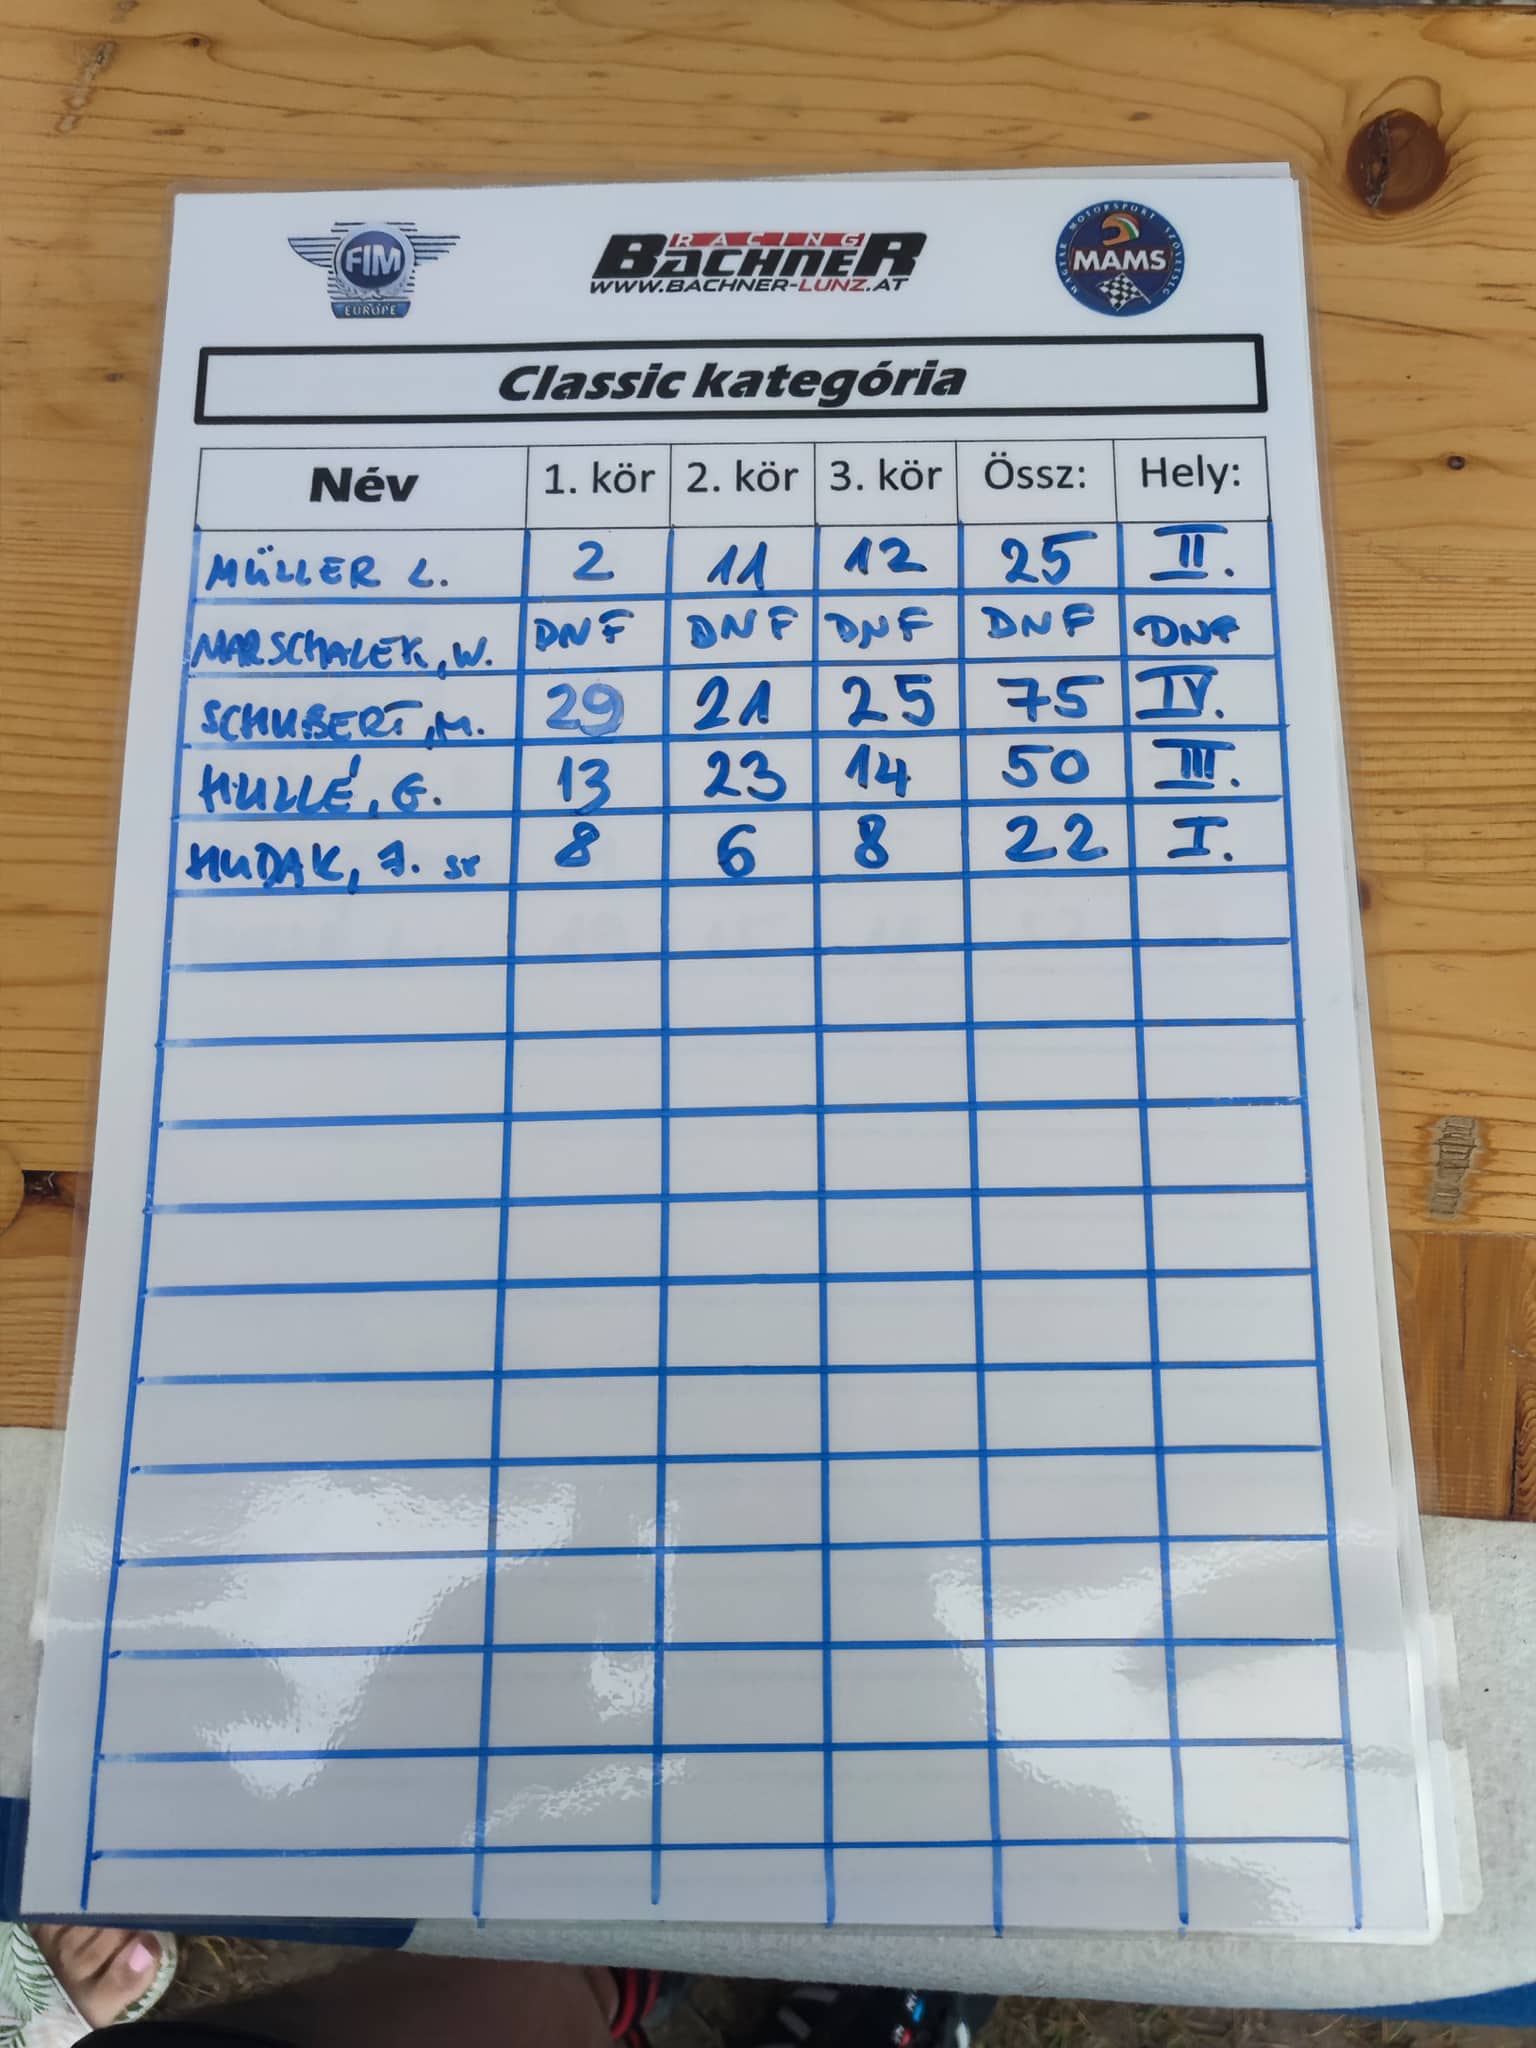 FIM
EUROPE
RACING
BACHNER
WWW.BACHNER-LUNZ.AT
MAGYAR MOTORSPORT SZÖVETSÉG
MAMS
Classic kategória
Név 1. kör 2. kör 3. kör Össz: Hely:
MÜLLER L. 2 11 12 25 II.
MARSCHALEK, W. DNF DNF DNF DNF DNF
SCHUBERT, M. 29 21 25 75 IV.
HULLÉ, G. 13 23 14 50 III.
HUDAK, J. sr 8 6 8 22 I.